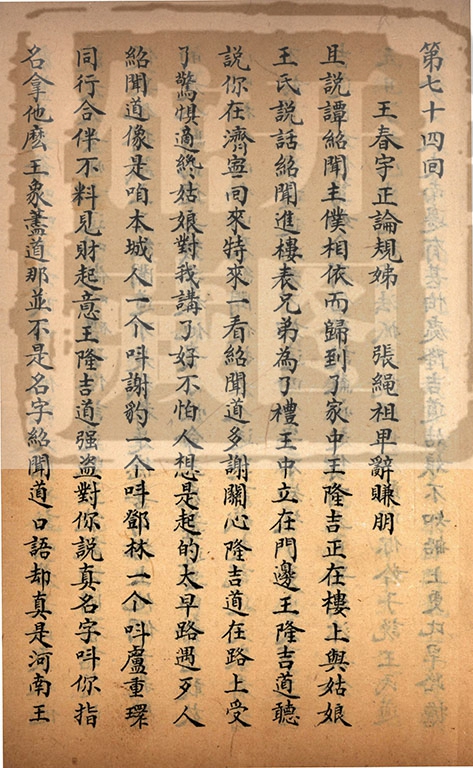 第七十四回
王春宇正論規姊　張繩祖卑辭賺朋
且說譚紹聞主僕相依而歸到了家中王隆吉正在樓上與姑娘
王氏說話紹聞進樓表兄弟為了禮王中立在門邊王隆吉道聽
說你在濟寧回來特來一看紹聞道多謝關心隆吉道在路上受
了驚惧適纔姑娘對我講了好不怕人想是起的大早路遇歹人
紹聞道像是咱本城人一个呌謝豹一个呌鄧林一个呌盧重環
同行合伴不料見財起意王隆吉道强盜對你說真名字呌你指
名拿他麽王象藎道那並不是名字紹聞道口語却真是河南王